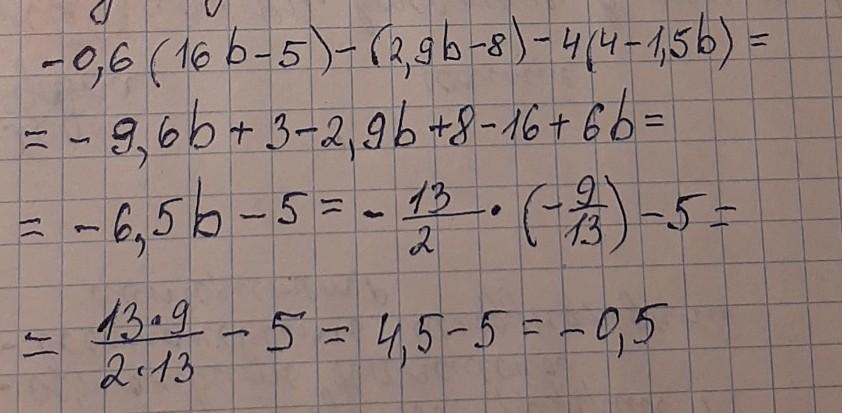 -0,6(16b-5)-(2,9b-8)-4(4-1,5b)=
=-9,6b+3-2,9b+8-16+6b=
=-6,5b-5=-13/2·(-9/13)-5=
=13·9/2·13-5=4,5-5=-0,5